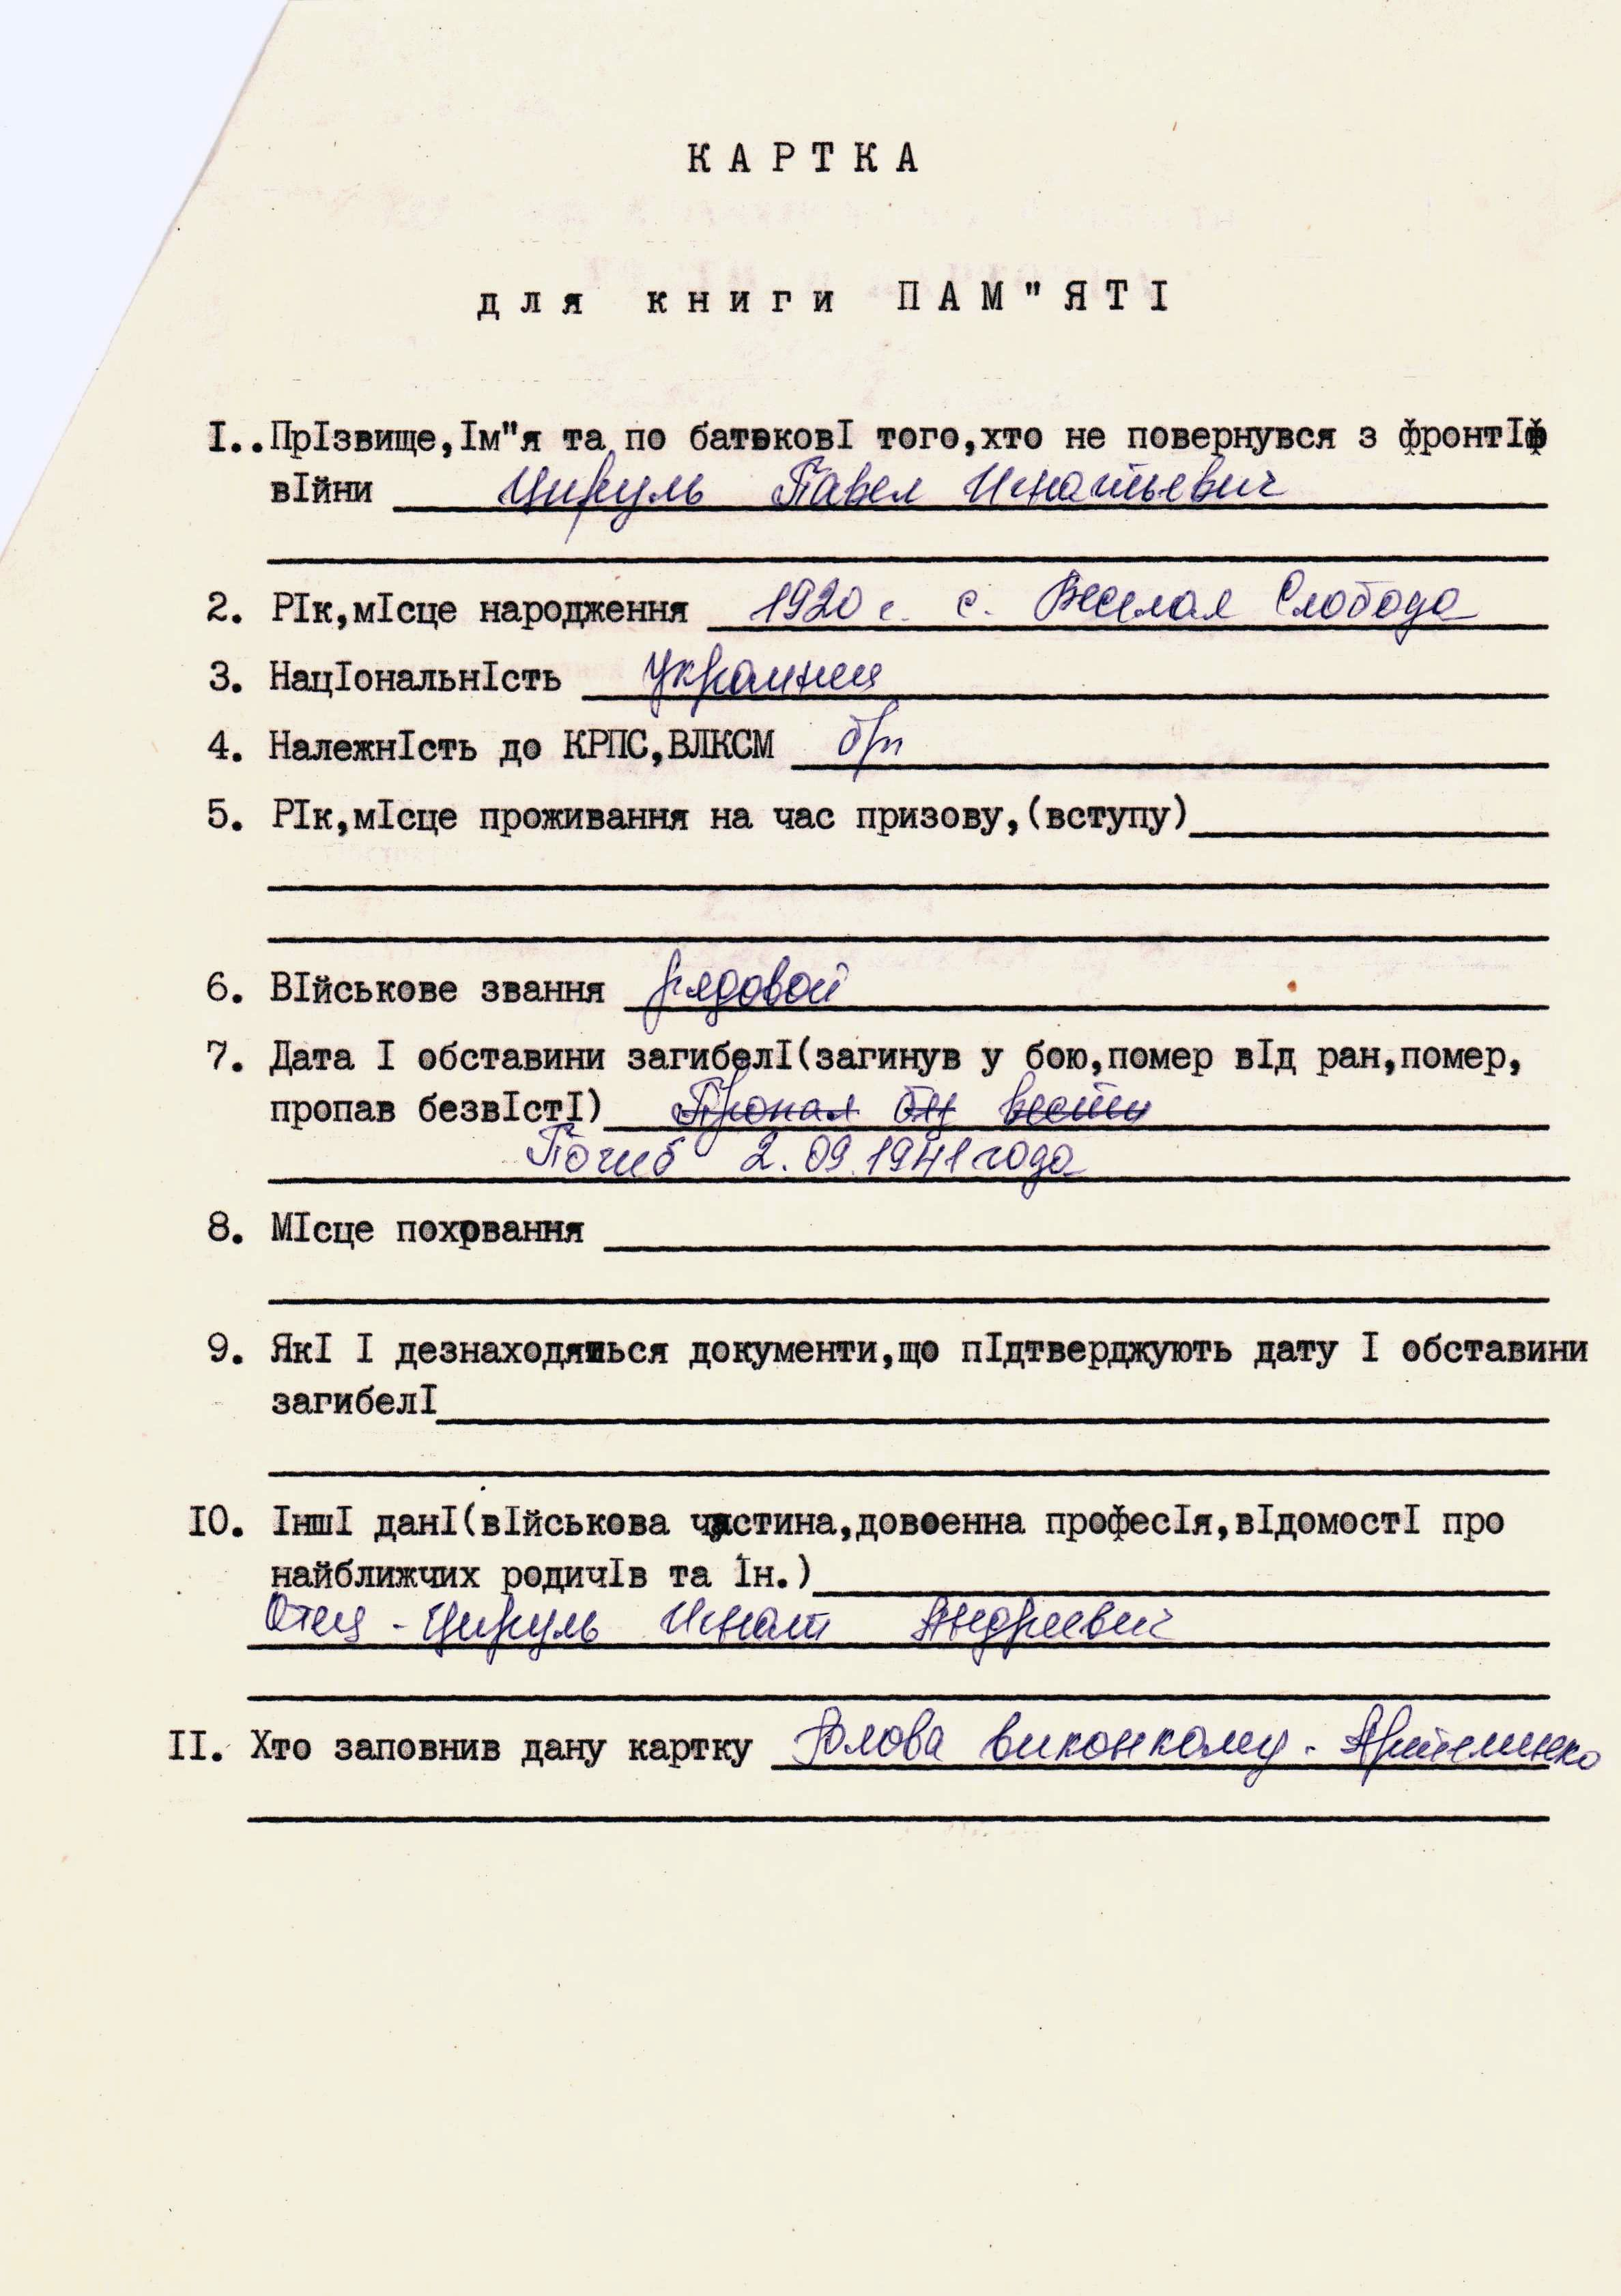 КАРТКА
для книги ПАМ"ЯТІ
I..ПрIзвище,Iм"я та по батьковI того,хто не повернувся з фронтIв
вIйни Цируль Павел Игнатьевич
2. РIк,мIсце народження 1920 г. с. Веселая Слобода
3. НацIональнIсть украинец
4. НалежнIсть до КРПС,ВЛКСМ б/п
5. РIк,мIсце проживання на час призову,(вступу)
6. ВIйськове звання рядовой
7. Дата I обставини загибелI(загинув у бою,помер вIд ран,помер,
пропав безвIстI) Пропал бз вести
Погиб 2.09.1941 года
8. МIсце поховання
9. ЯкI I дезнаходяться документи,що пIдтверджують дату I обставини
загибелI
IO. IншI данI(вIйськова частина,довоенна професIя,вIдомостI про
найближчих родичIв та Iн.)
Отец - Цируль Игнат Андреевич
II. Хто заповнив дану картку Голова виконкому - Артеменко